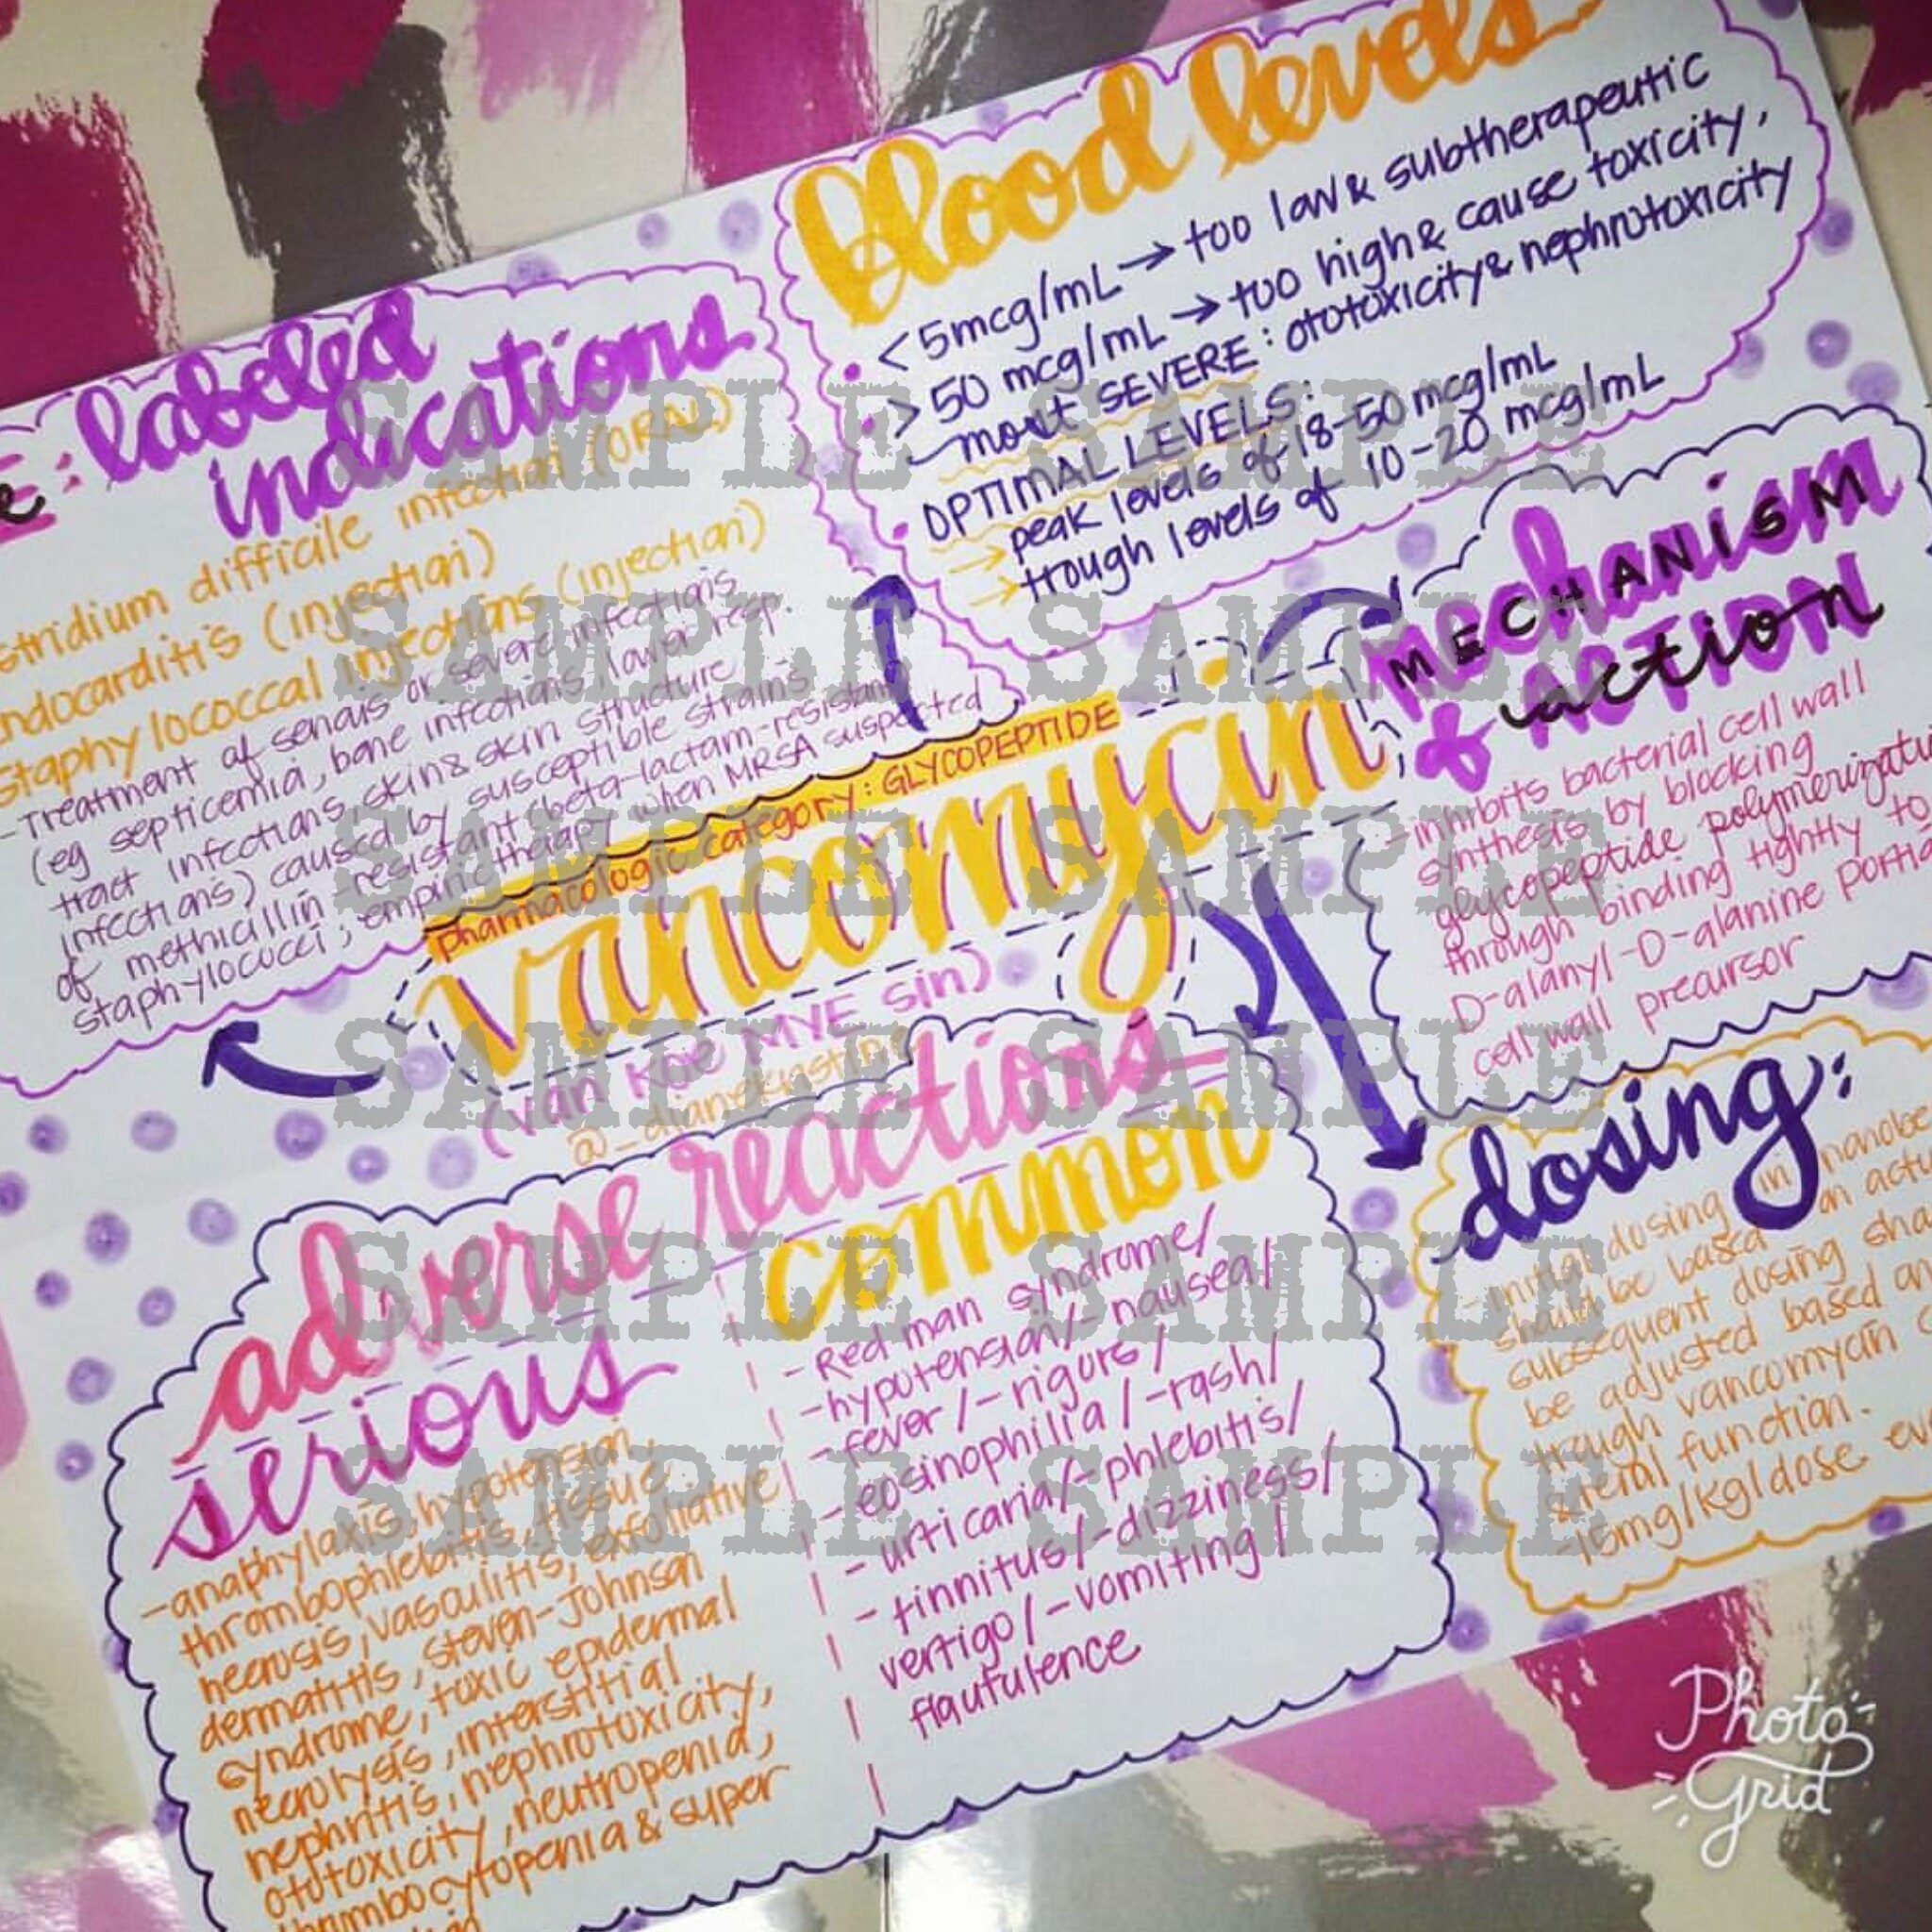 Blood levels
<5mcg/mL → too low & subtherapeutic
>50 mcg/mL → too high & cause toxicity,
most SEVERE: ototoxicity & nephrotoxicity
OPTIMAL LEVELS:
→ peak levels of 18-50 mcg/mL
→ trough levels of 10-20 mcg/mL
labeled
indications
difficile infection (ORAL)
endocarditis (injection)
staphylococcal injections (injection)
-Treatment of serious or severe infections
(eg septicemia, bone infections, lower resp.
tract infections, skin & skin structure
infections) caused by susceptible strains
of methicillin-resistant (beta-lactam-resistant
staphylococci; empiric therapy when MRSA suspected
pharmacologic category: GLYCOPEPTIDE
vancomycin
(van koe MYE sin)
MECHANISM
of action
-inhibits bacterial cell wall
synthesis by blocking
glycopeptide
through binding tightly to
D-alanyl-D-alanine
cell wall precursor
adverse reactions
serious
-anaphylaxis, hypotension,
thrombophlebitis, tissue
necrosis, vasculitis, exfoliative
dermatitis, steven-Johnson
syndrome, toxic epidermal
necrolysis, interstitial
nephritis, nephrotoxicity,
ototoxicity, neutropenia,
thrombocytopenia & super
common
-Red man syndrome/
-hypotension/-nausea/
-fever/-rigors/
-eosinophilia/-rash/
-urticaria/-phlebitis/
-tinnitus/-dizziness/
vertigo/-vomiting/
flautulence
dosing:
-initial dosing in
should be based on
subsequent dosing
be adjusted based on
trough vancomycin
& renal function.
-15mg/kg/dose
SAMPLE SAMPLE
SAMPLE SAMPLE
SAMPLE SAMPLE
SAMPLE SAMPLE
SAMPLE SAMPLE
SAMPLE SAMPLE
Photo
Grid